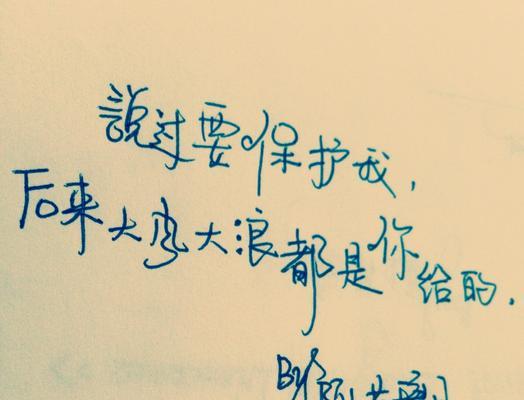 說过要保护我,
后来大风大浪都是你给的.